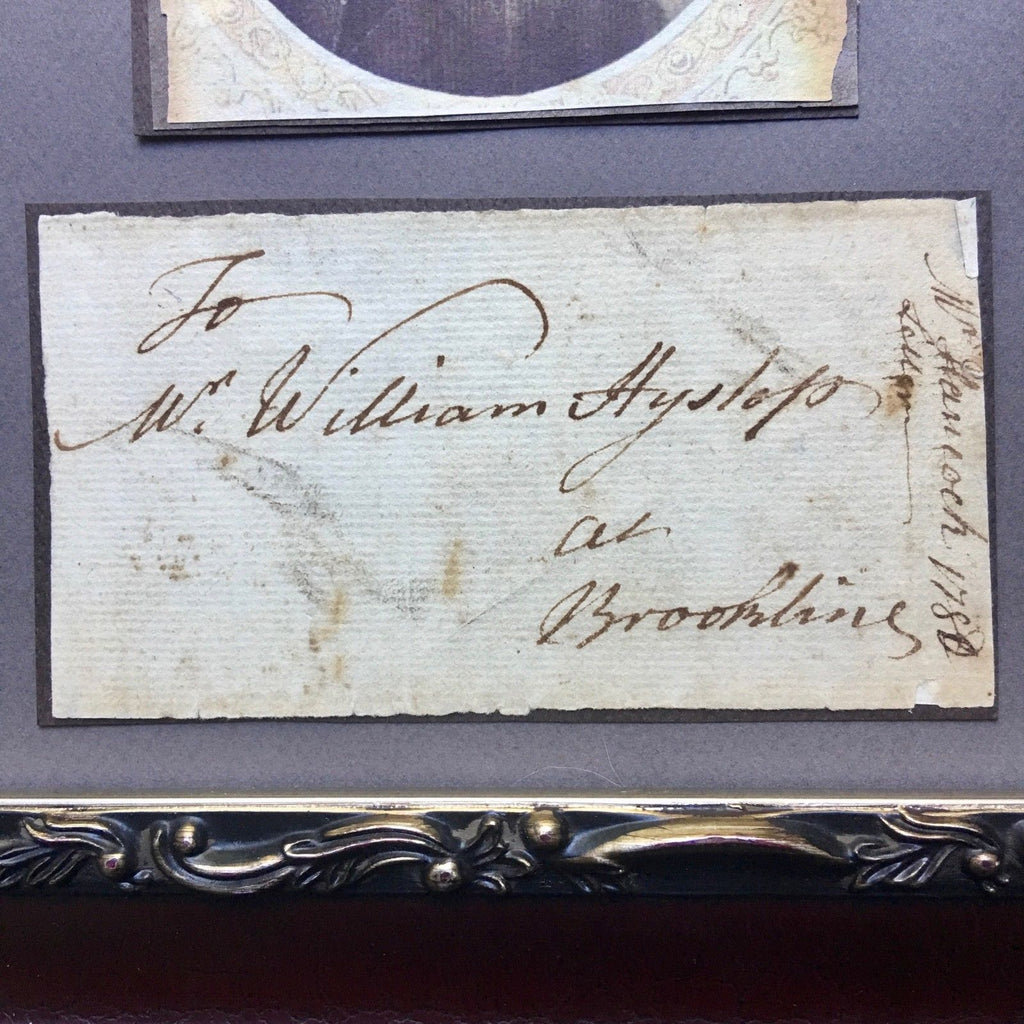 To
Mr. William Hyslop
at
Brookline
Mr. Hancock 1788
Letter